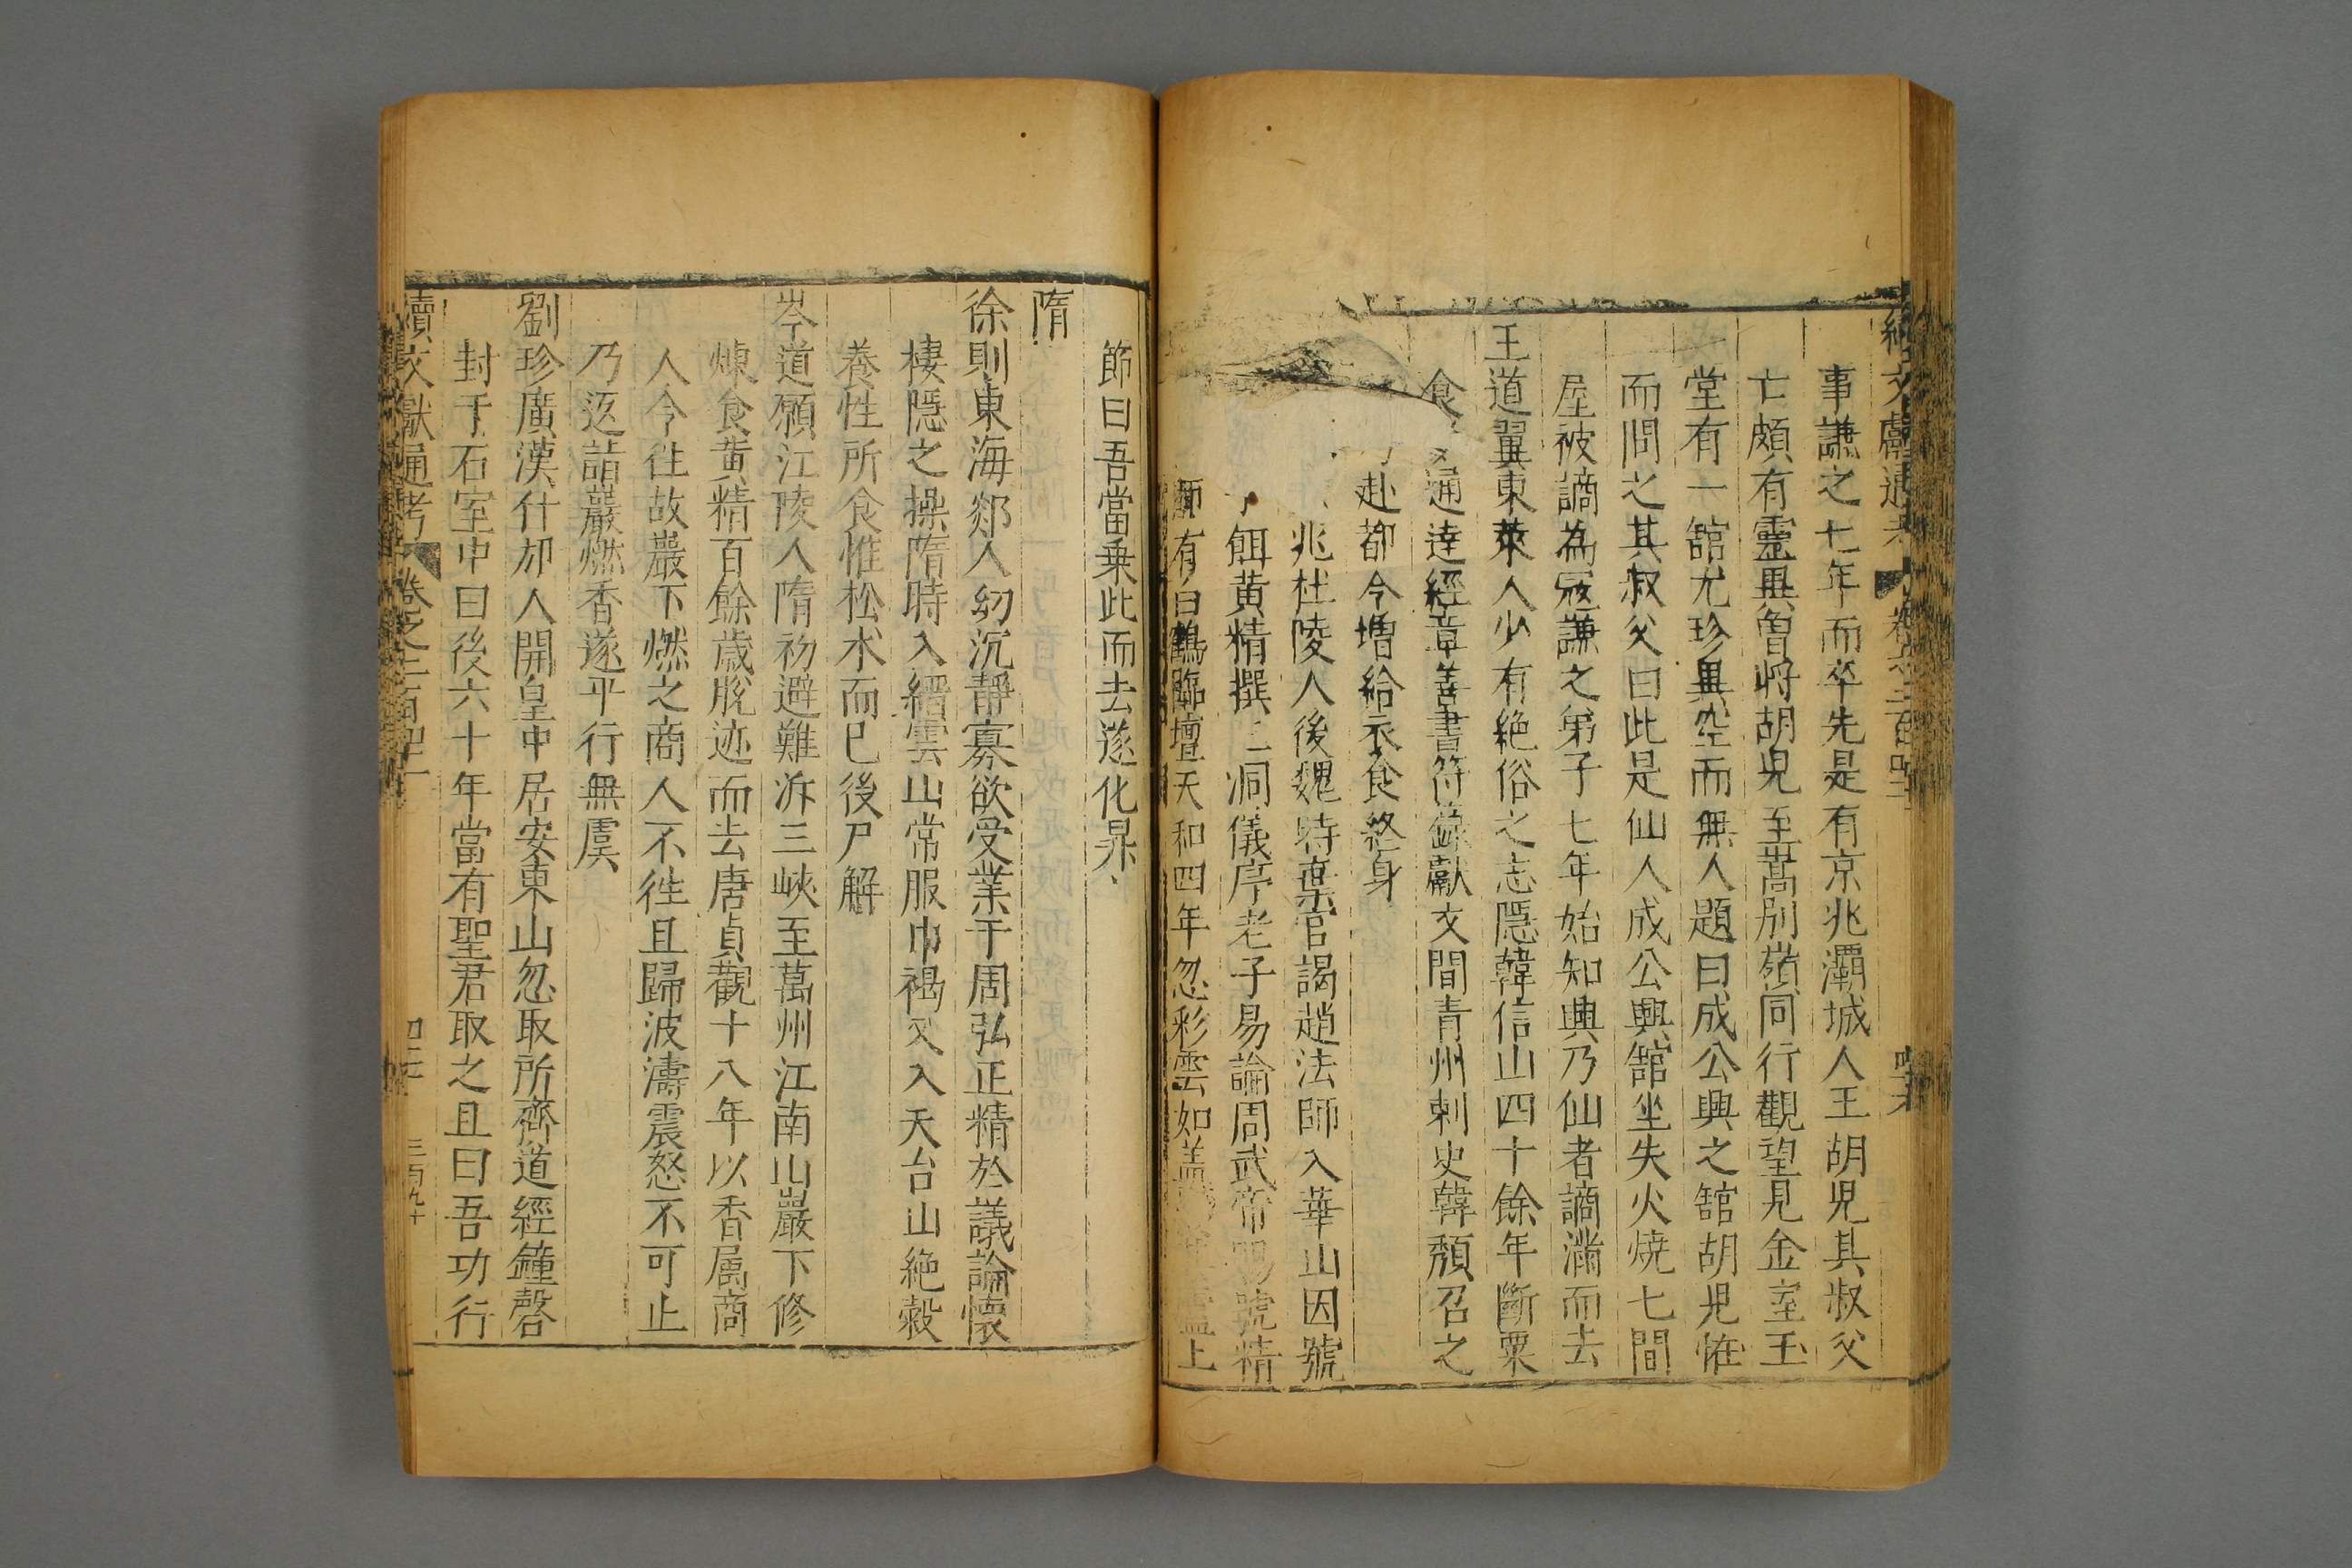 續文獻通考 卷之二百四
事謙之七年而卒先是有京兆灞城人王胡児其叔父
亡頗有靈異曽將胡児至嵩别嶺同行觀望見金室玉
堂有一舘尤珍異空而無人題曰成公興之舘胡児恠
而問之其叔父曰此是仙人成公興舘坐失火燒七間
屋被謫為寇謙之弟子七年始知興乃仙者謫滿而去
王道翼東萊人少有絶俗之志隱韓信山四十餘年斷粟
食 通逹經章善書符錄獻文間青州刺史韓頽召之
赴都令增給衣食終身
兆杜陵人後魏時棄官謁趙法師入華山因號
餌黄精撰三洞儀序老子易論周武帝賜號精
有白鶴臨壇天和四年忽彩雲如蓋 上
節曰吾當乗此而去遂化昇
隋
徐則東海郯人幼沉靜寡欲受業于周弘正精於議論懷
棲隱之操隋時入縉雲山常服巾褐又入天台山絶穀
養性所食惟松术而已後尸解
岑道願江陵人隋初避難泝三峽至萬州江南山巖下修
煉食黄精百餘歳脫迹而去唐貞觀十八年以香属商
人令往故巖下燃之商人不徃且歸波濤震怒不可止
乃返詣巖燃香遂平行無虞
劉珍廣漢什邡人開皇中居安東山忽取所齎道經鐘磬
封于石室中曰後六十年當有聖君取之且曰吾功行
續文獻通考 卷之二百四十一 三百九十